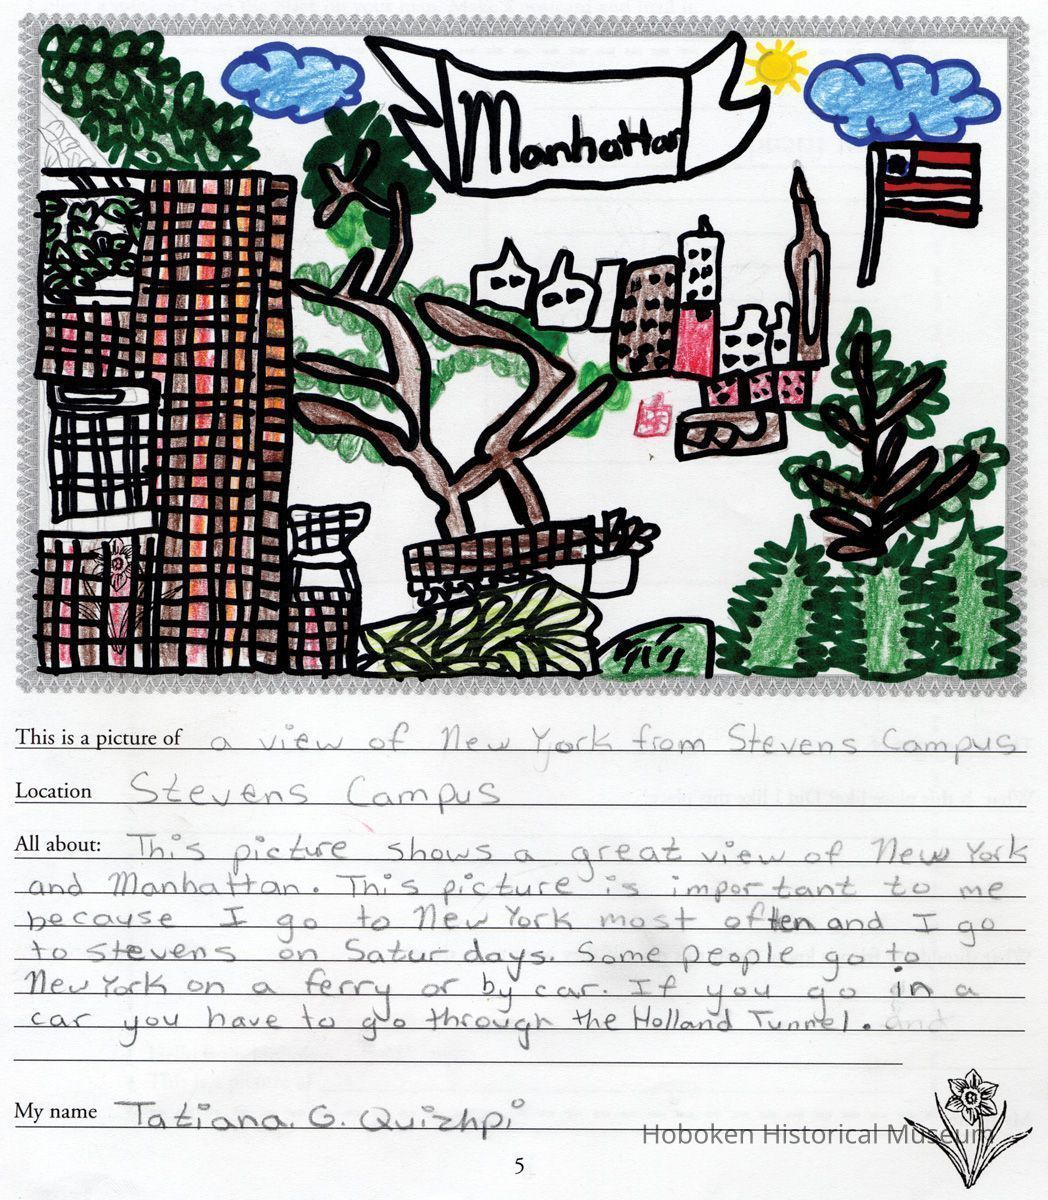 Manhattan
This is a picture of a view of New York from Stevens Campus
Location Stevens Campus
All about: This picture shows a great view of New York
and Manhattan. This picture is important to me
because I go to New York most often and I go
to stevens on Saturdays. Some people go to
New York on a ferry or by car. If you go in a
car you have to go through the Holland Tunnel. and
My name Tatiana. G. Quizhpi
Hoboken Historical Museum
5